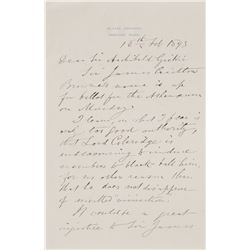 12th Feb 1893
Dear Sir Archibald Geikie
Sir James Crichton
Browne's name is up
for ballot for the Athenæum
on Monday
I learn, but I fear is
only too good authority,
that Lord Coleridge is
endeavouring to induce
members to black ball him,
for no other reason than
that he does not disapprove
of vivisection.
It would be a great
injustice to Sir James